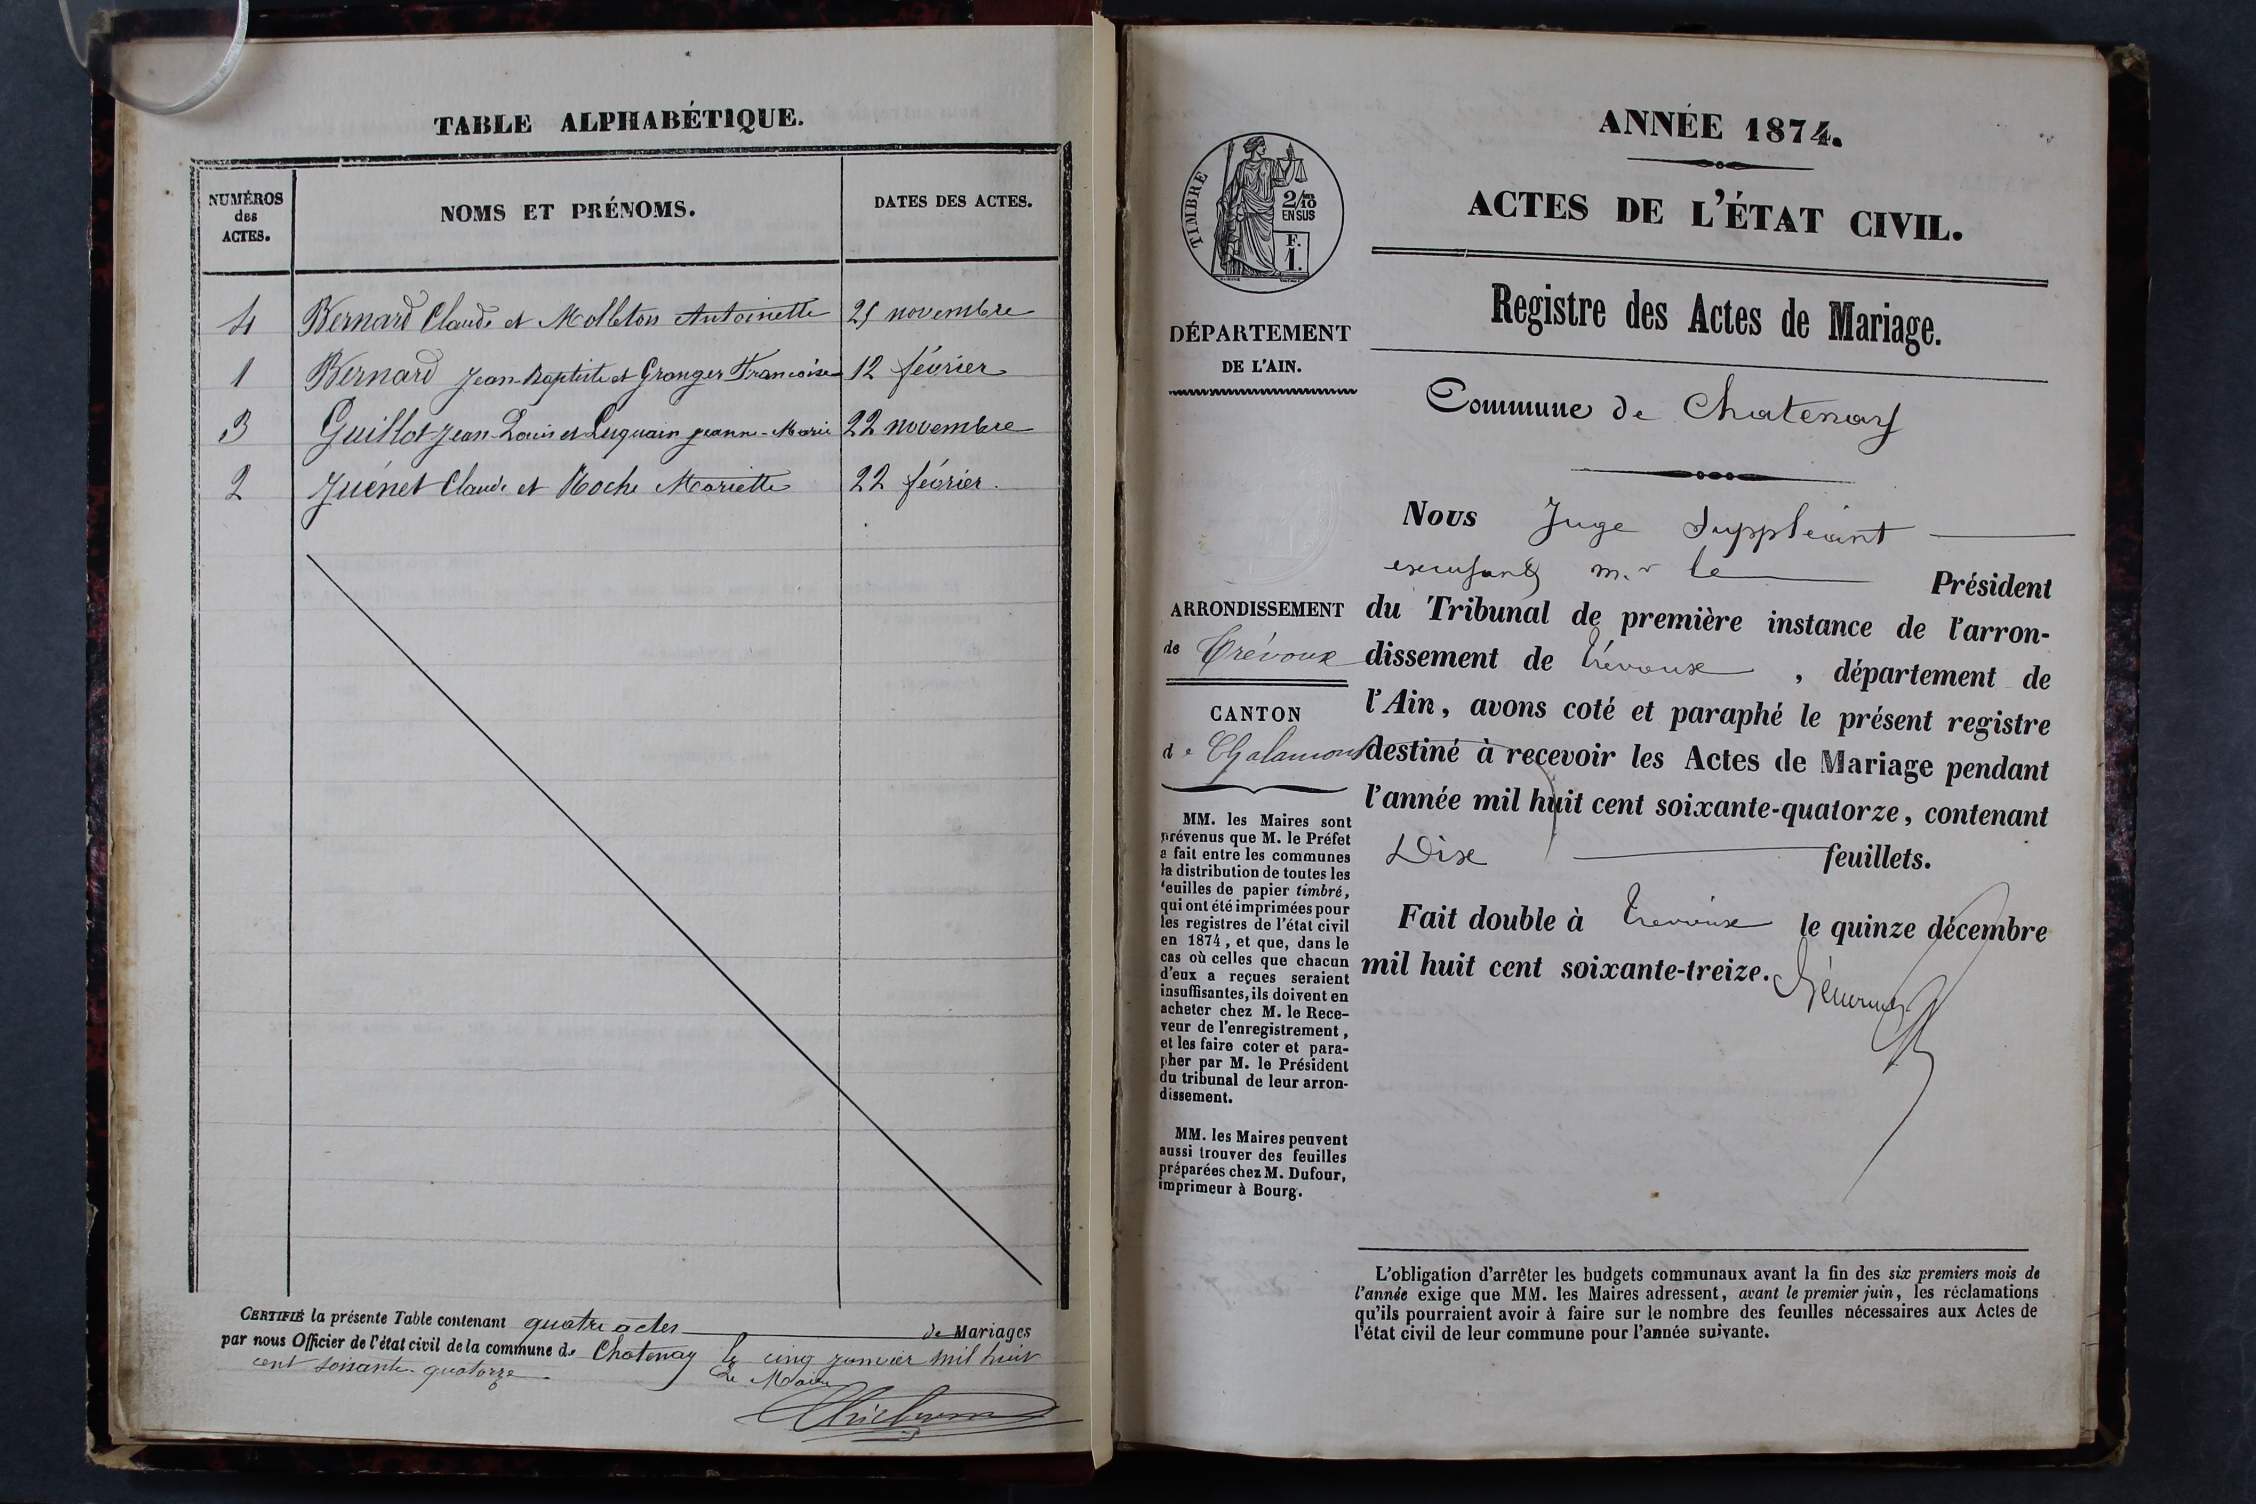 TABLE ALPHABÉTIQUE.
NUMÉROS
des
ACTES.
NOMS ET PRÉNOMS.
DATES DES ACTES.
4 Bernard Claude et Molleton Antoinette 25 novembre
1 Bernard Jean-Baptiste et Granger Francoise 12 février
3 Guillot Jean-Louis et Luquain Jeanne-Marie 22 novembre
2 Juénet Claude et Roche Mariette 22 février.
CERTIFIÉ la présente Table contenant quatre actes de Mariages
par nous Officier de l'état civil de la commune de Chatenay le cinq janvier mil huit
cent soixante-quatorze.
Le Maire
ANNÉE 1874.
ACTES DE L'ÉTAT CIVIL.
Registre des Actes de Mariage.
TIMBRE
2/10
EN SUS
F.
1.
DÉPARTEMENT
DE L'AIN.
Commune de Chatenay
ARRONDISSEMENT
de Trévoux
CANTON
de Chalamont
MM. les Maires sont
prévenus que M. le Préfet
a fait entre les communes
la distribution de toutes les
feuilles de papier timbré,
qui ont été imprimées pour
les registres de l'état civil
en 1874, et que, dans le
cas où celles que chacun
d'eux a reçues seraient
insuffisantes, ils doivent en
acheter chez M. le Rece-
veur de l'enregistrement,
et les faire coter et para-
pher par M. le Président
du tribunal de leur arron-
dissement.
MM. les Maires peuvent
aussi trouver des feuilles
préparées chez M. Dufour,
imprimeur à Bourg.
Nous Juge Suppléant
m.r le Président
du Tribunal de première instance de l'arron-
dissement de Trévoux, département de
l'Ain, avons coté et paraphé le présent registre
destiné à recevoir les Actes de Mariage pendant
l'année mil huit cent soixante-quatorze, contenant
Dix feuillets.
Fait double à Trevoux le quinze décembre
mil huit cent soixante-treize.
L'obligation d'arrêter les budgets communaux avant la fin des six premiers mois de
l'année exige que MM. les Maires adressent, avant le premier juin, les réclamations
qu'ils pourraient avoir à faire sur le nombre des feuilles nécessaires aux Actes de
l'état civil de leur commune pour l'année suivante.